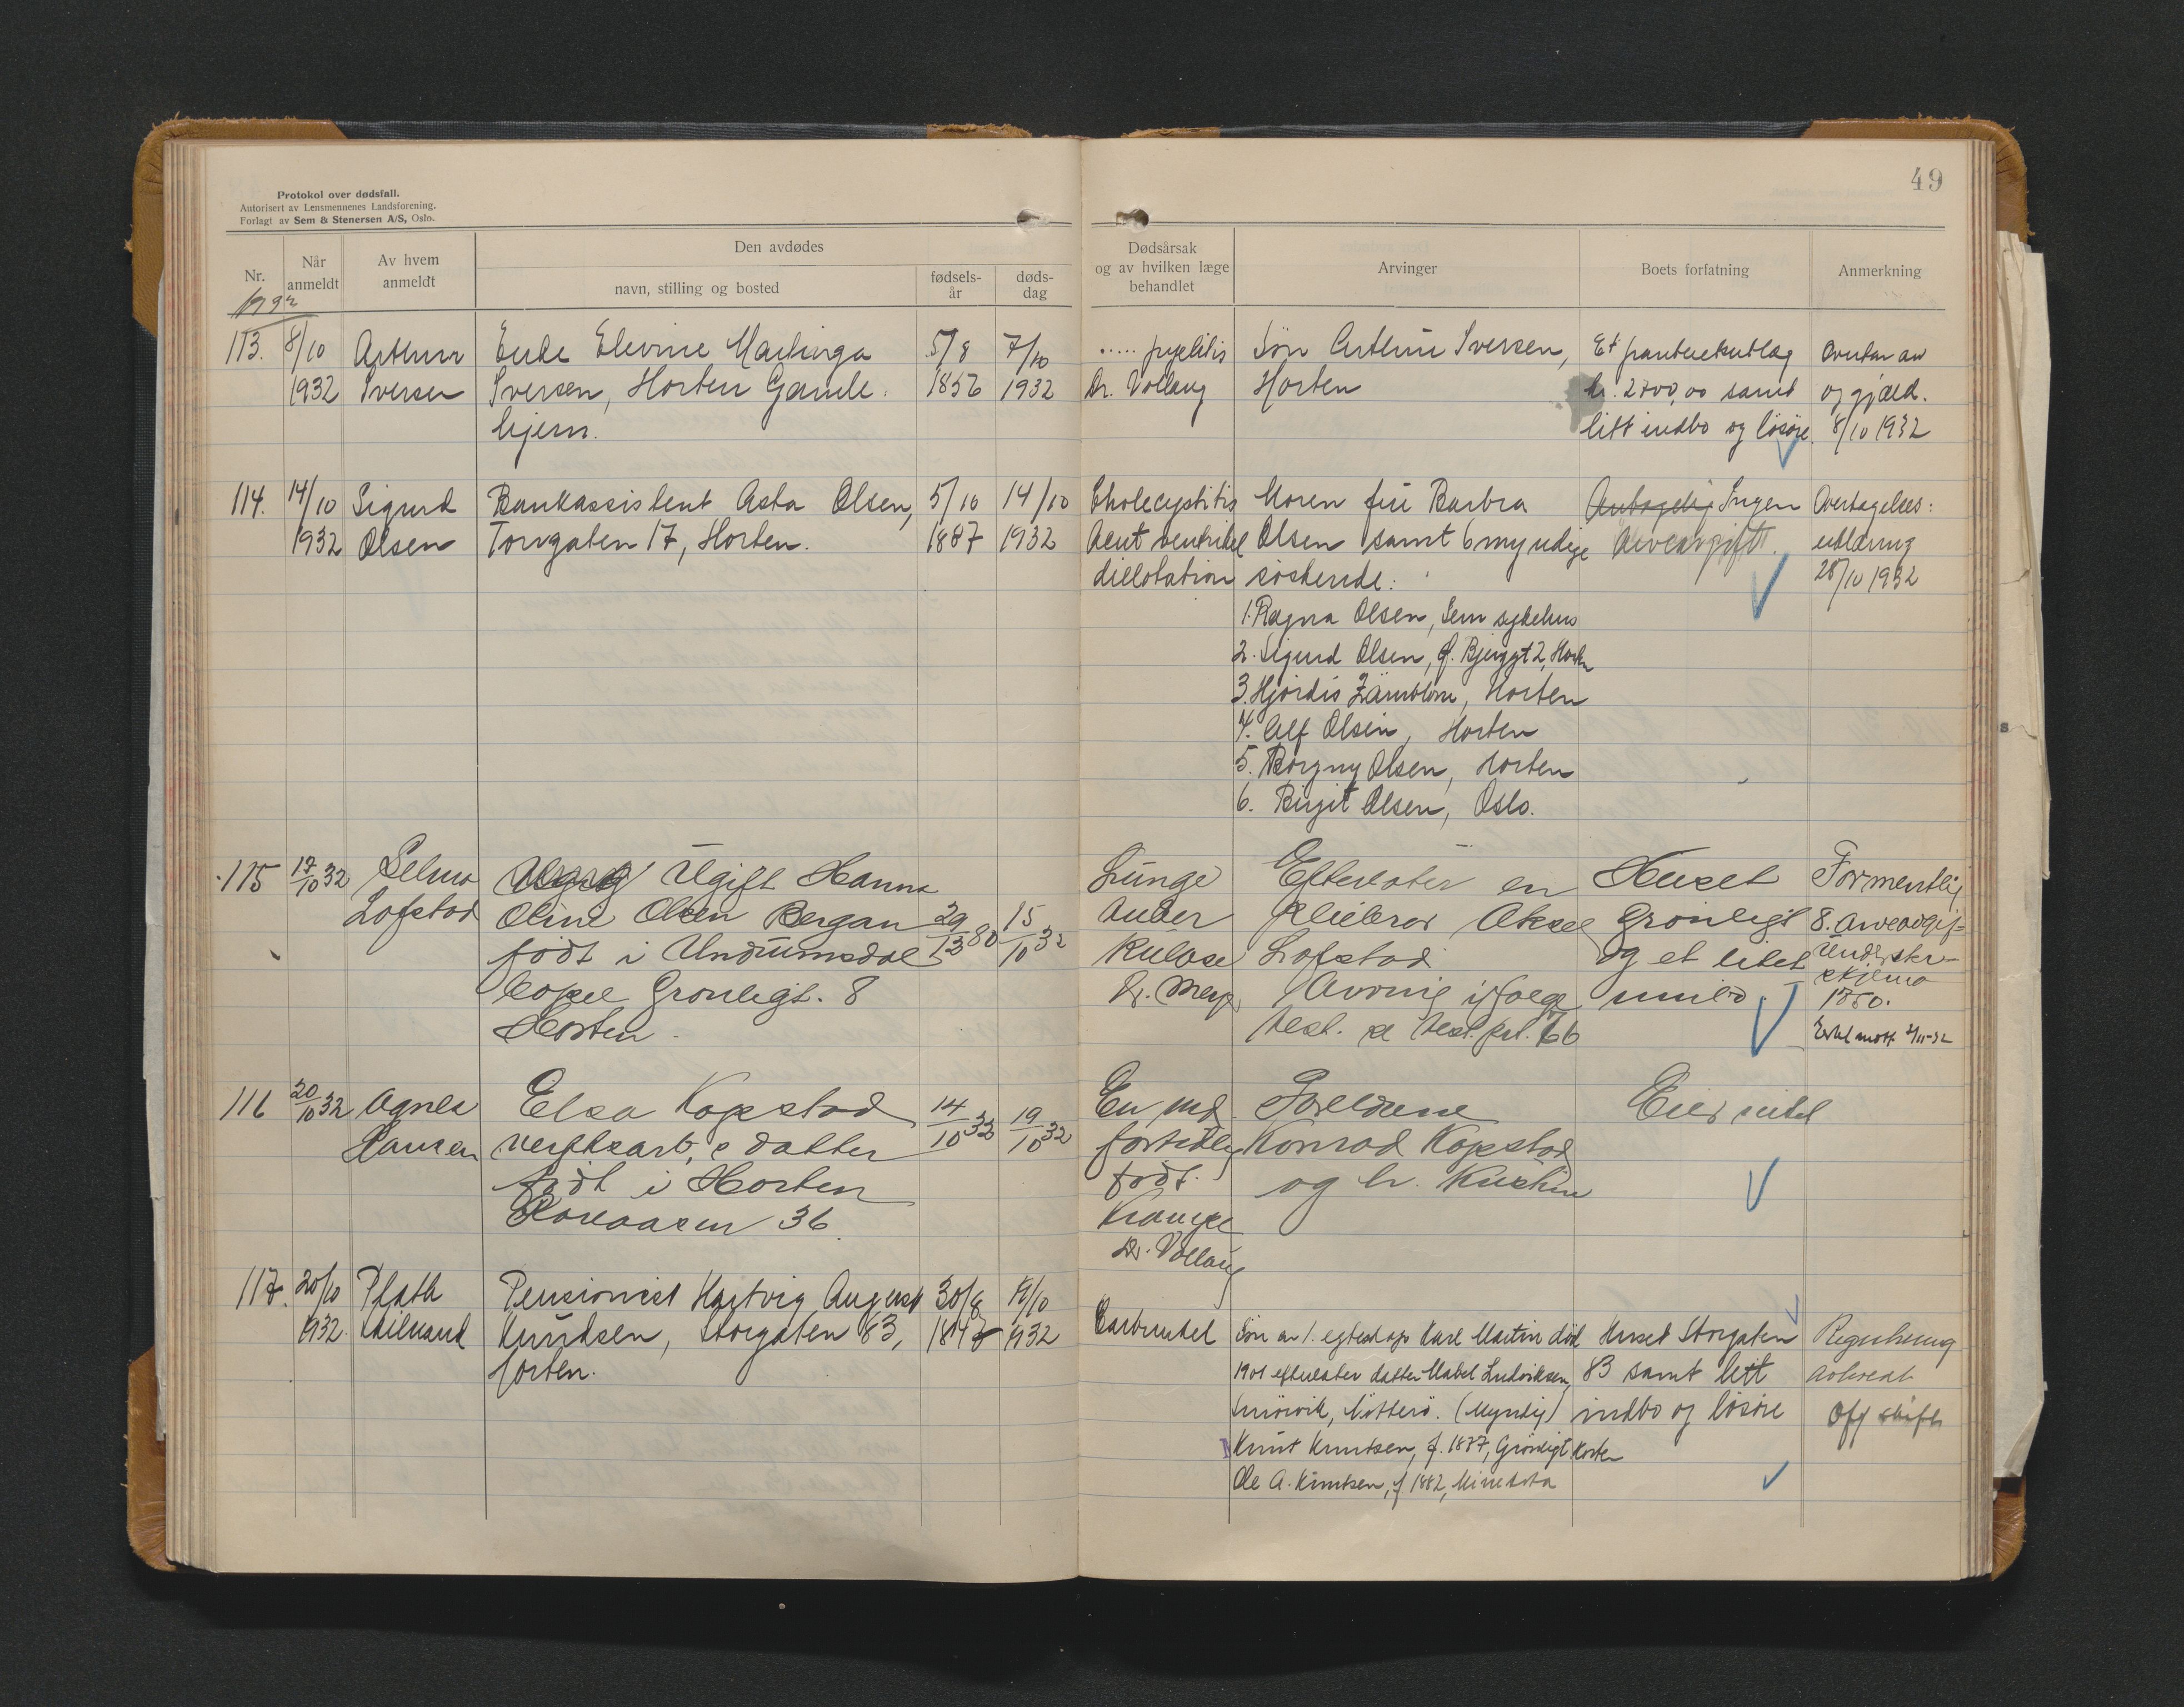 49
Protokol over dødsfall.
Autorisert av Lensmennenes Landsforening.
Forlagt av Sem & Stenersen A/S, Oslo.
Nr.
Når anmeldt
Av hvem anmeldt
Den avdødes
navn, stilling og bosted
fødsels-år
døds-dag
Dødsårsak og av hvilken læge behandlet
Arvinger
Boets forfatning
Anmerkning
1932
113. 8/10 1932
Arthur
Iversen
Enke Elevine
Iversen, Horten Gamle
hjem.
5/8
1856
7/10
1932
..... pyelitis
Dr. Vollaug
Søn Arthur Iversen,
Horten
Et panteutlæg
kr. 2700,00 samt
litt indbo og løsøre
Overtar arv
og gjæld.
8/10 1932
114. 14/10 1932
Sigurd
Olsen
Bankassistent Asta Olsen,
Torvgaten 17, Horten.
5/10
1887
14/10
1932
Cholecystitis
Acut ventrikel
dillotation
Moren fru Barbra
Olsen samt 6 myndige
søskende:
1. Ragna Olsen, Sem sykehus
2. Sigurd Olsen, f. Bjerggt 2, Horten
3. Hjørdis, Horten
4. Alf Olsen, Horten
5. Borgny Olsen, Horten
6. Birgit Olsen, Oslo.
Ingen
Arveavgift.
Overtagelses:
erklæring
28/10 1932
115 17/10 32
Selma
Lofstad
Ugift Hanna
Oline Olsen Bergan
født i Undrumsdal
bopel Grønligt. 8
Horten
29/ 80
15/10 32
Lunge
tuber
kulose
Dr.
Efterlater en
Pleiebror Aksel
Lofstad
Arving ifølge
test. se test.prt. 66
Huset
Grønligt
og et litet
innbo
Formentlig
8. arveavgif=
Underskr-
skjema
1750.
116 20/10 32
Agnes
Hansen
Elsa Kopstad
verftsarb,s datter
født i Horten
36.
14/10 32
19/10 32
En md.
fortidlig
født.
Krampe
Dr. Vollaug
Foreldrene
Konrad Kopstad
og h.
Eier intet
117. 20/10 1932
Pensionist Hartvig August
Knudsen, Storgaten 83,
Horten.
30/8
1847
/10
1932
Carbunkel
Søn av 1. egteskap Karl Martin død
1901 efterlater datter Mabel Ludviksen,
Nøtterø. (Myndig)
Knut Knutsen, f. 1877, Grønligt Horten
Ole A. Knutsen, f 1882, Minesota
Huset Storgaten
83 samt litt
indbo og løsøre
Off skifte